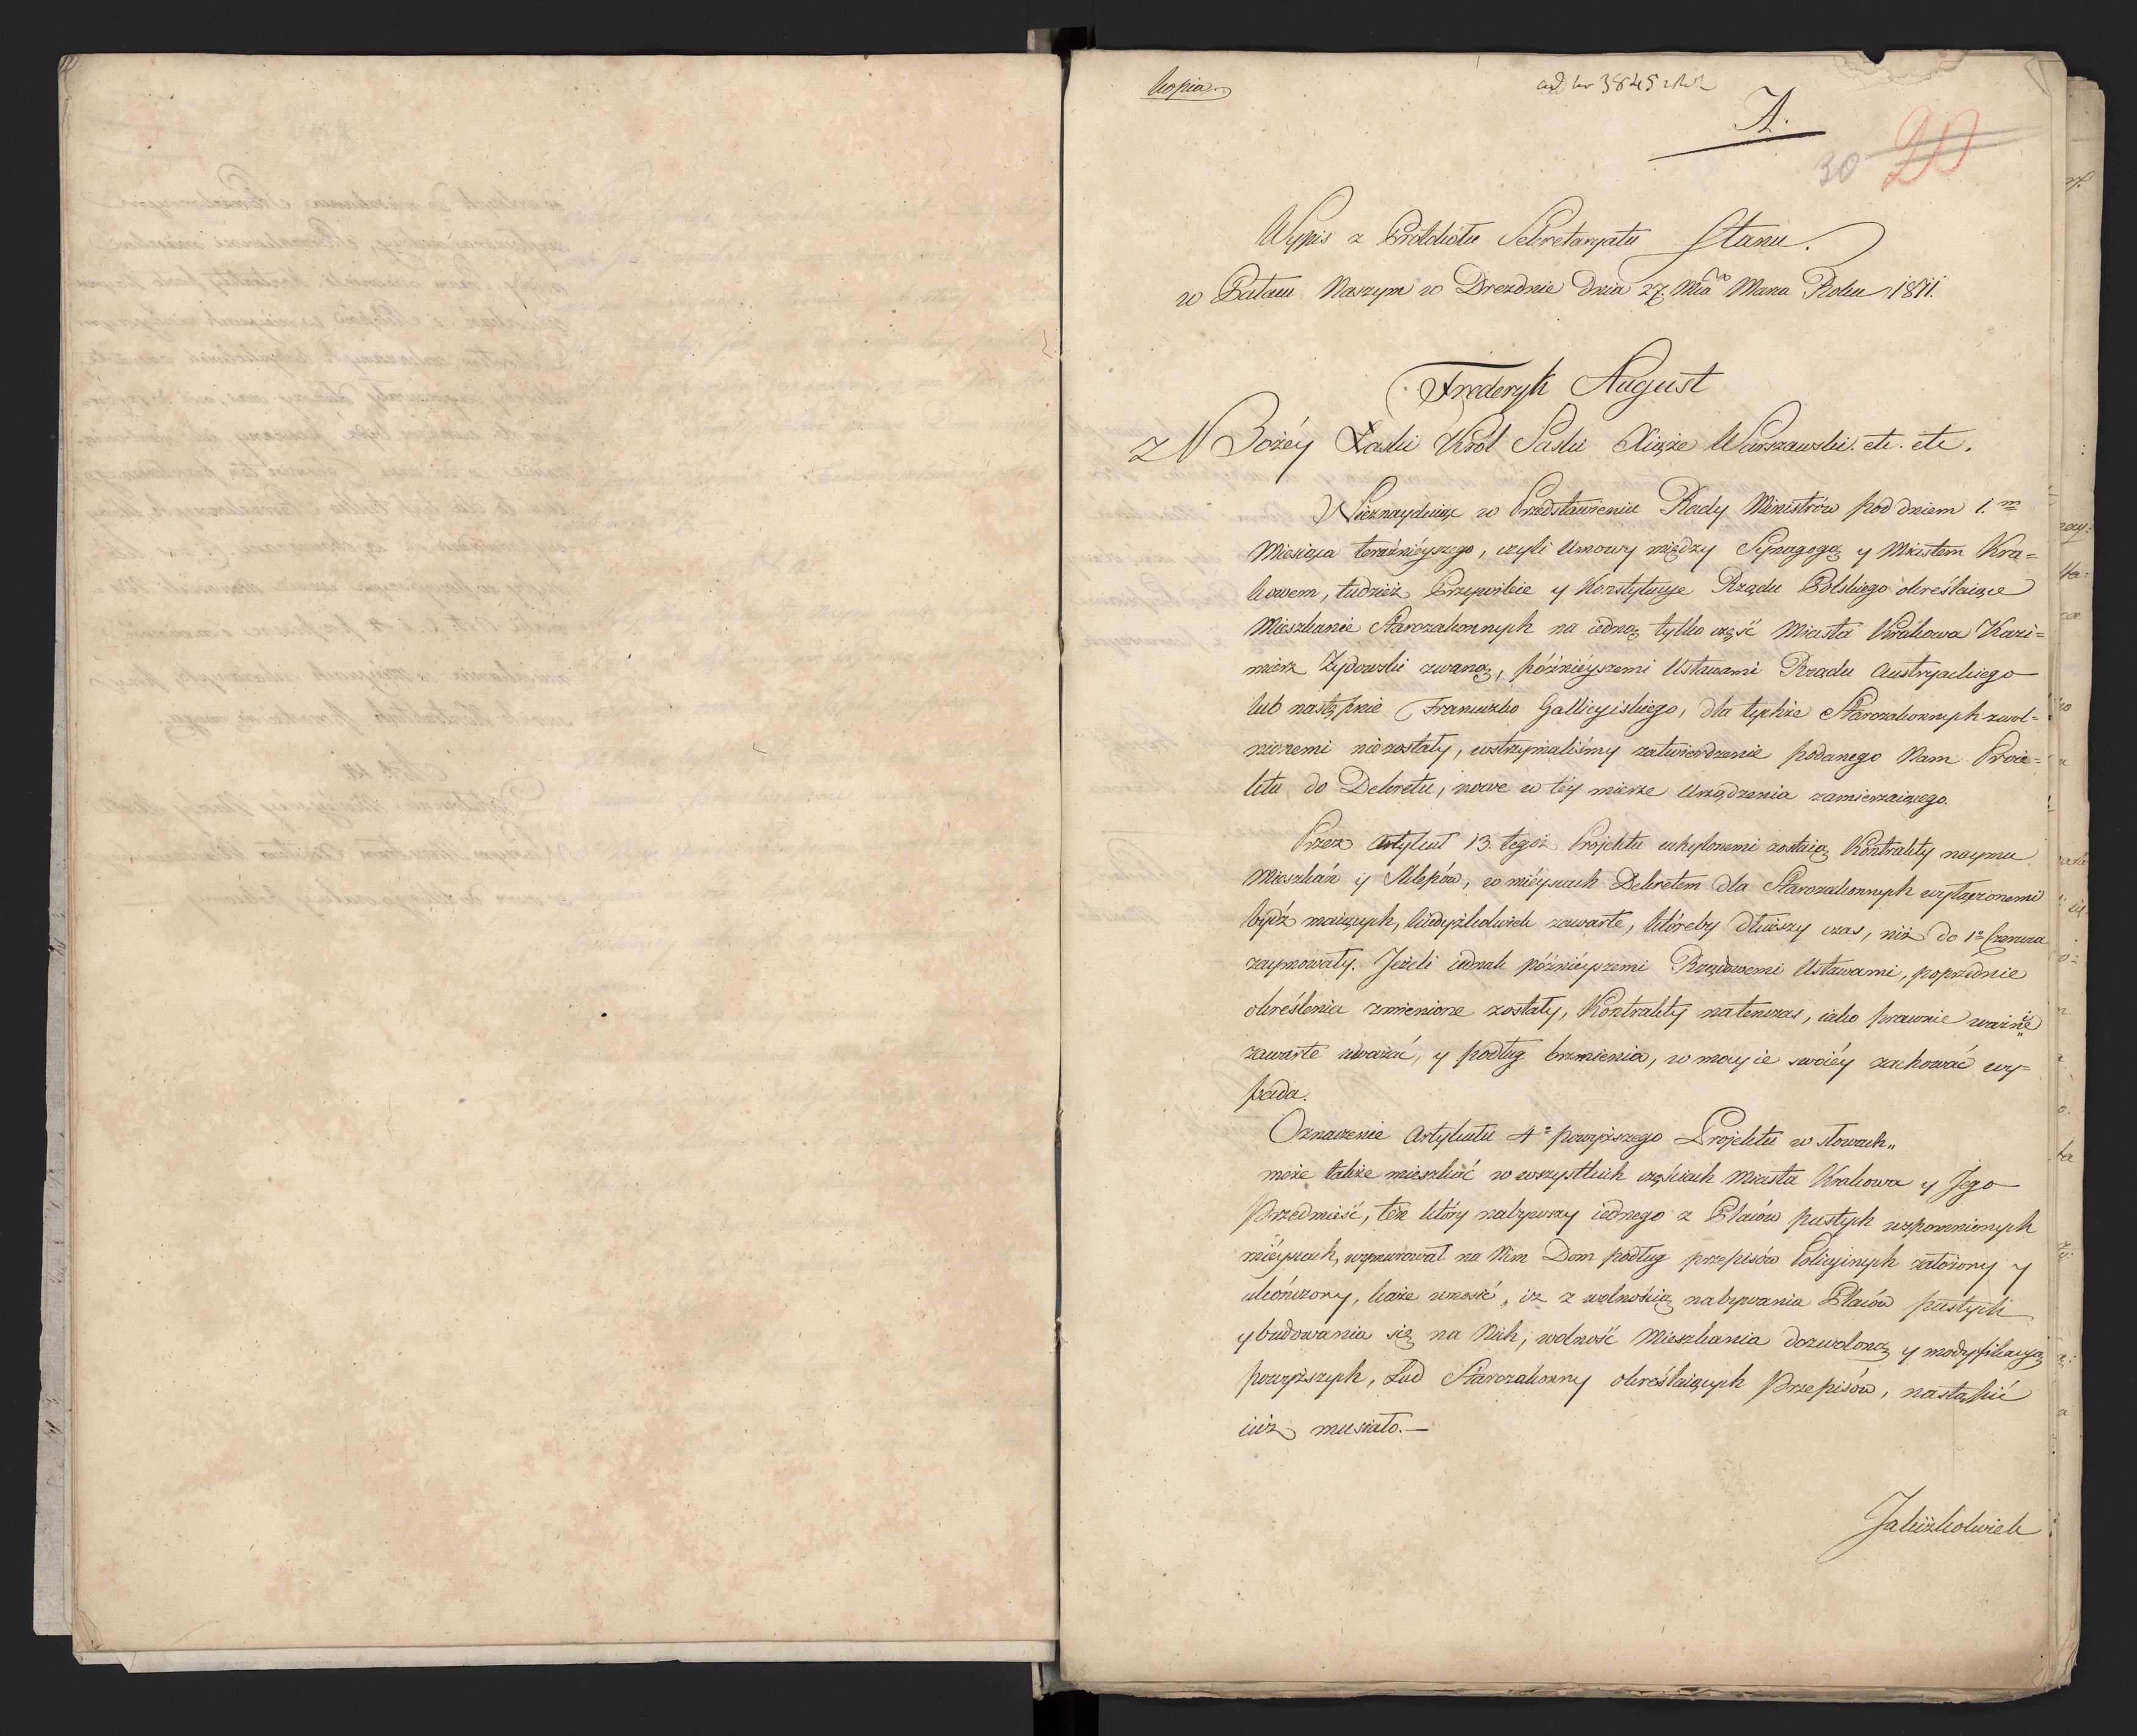 Kopia
ad Nr 3845
A.
30 20
Wypis z Protokółu Sekretaryatu Stanu.
w Pałacu Naszym w Dreznie dnia 27. Mca Marca Roku 1811.
Frederyk August
Z Bożéy Łaski Król Saski Xiąże Warszawski. etc. etc.
Nieznayduiąc w Przedstawieniu Rady Ministrów pod dniem 1.
Miesiąca teraźnieyszego, czyli Umowy między Synagogą y Miastem Kra=
kowem, tudzież Przywileie y Konstytucye Rządu Polskiego określaiące
Mieszkanie Starozakonnych na iedną tylko część Miasta Krakowa Kazi=
mierz Żydowski zwaną, póżnieyszemi Ustawami Rządu Austryackiego
lub następnie Francuzko Gallicyiskiego, dla tychże Starozakonnych zwol=
nionemi niezostały, wstrzymaliśmy zatwierdzenie podanego Nam Proie=
ktu do Dekretu, nowe w téy mierze Urządzenia zamierzaiącego.
Przez Artykuł 13. tegoż Projektu uchylonemi zostaią Kontrakty naymu
Mieszkań y Sklepów, w mieyscach Dekretem dla Starozakonnych wyłączonemi
bydź maiących, kiedyżkolwiek zawarte, któreby dłuższy czas, niż do 1º Czerwca
zaymowały. Jeżeli iednak póżnieyszemi Rządowemi Ustawami, poprzednie
określenia zmienione zostały, Kontrakty natenczas, iako prawnie ważne
zawarte uważać, y podług brzmienia, w mocy ie swoiéy zachować wy=
pada.
Oznaczenie Artykułu 4º powyższego Projektu w słowach„
może także mieszkać w wszystkich częściach Miasta Krakowa y Jego
Przedmieść, ten który nabywszy iednego z Placów pustych wspomnionych
mieyscach, wymurował na Nim Dom podług przepisów Policyinych założony y
ukończony, każe wnosić, iż z wolnością nabywania Placów pustych
y budowania się na Nich, wolność Mieszkania dozwoloną y modyfikacyą
powyższych, Lud Starozakonny określaiących Przepisów, nastąpić
iuż musiało.—
Jakiżkolwiek